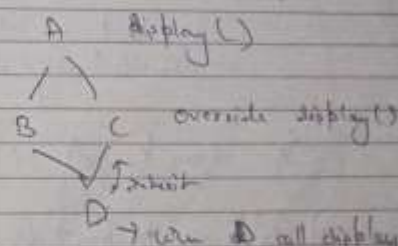 A display()
B C override display()
inherit
D
→ when D call display